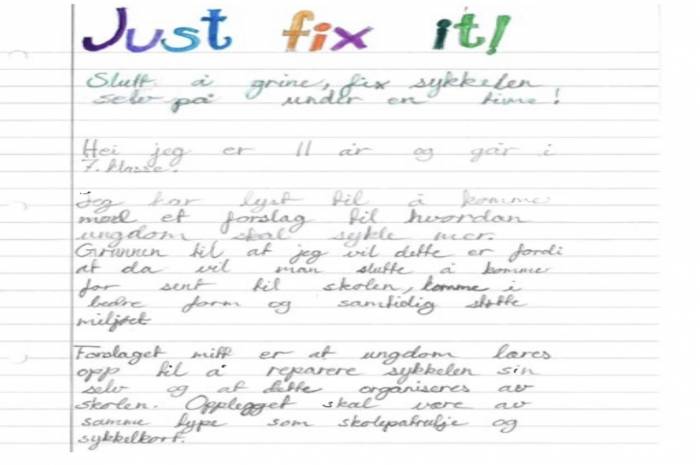 Just fix it!
Slutt å grine, fix sykkelen
selv på under en time!
Hei jeg er 11 år og går i
7. klasse.
Jeg har lyst til å komme
med et forslag til hvordan
ungdom skal sykle mer.
Grunnen til at jeg vil dette er fordi
at da vil man slutte å komme
for sent til skolen, komme i
bedre form og samtidig støtte
miljøet
Forslaget mitt er at ungdom læres
opp til å reparere sykkelen sin
selv og at dette organiseres av
skolen. Opplegget skal være av
samme type som skolepatrulje og
sykkelkort.